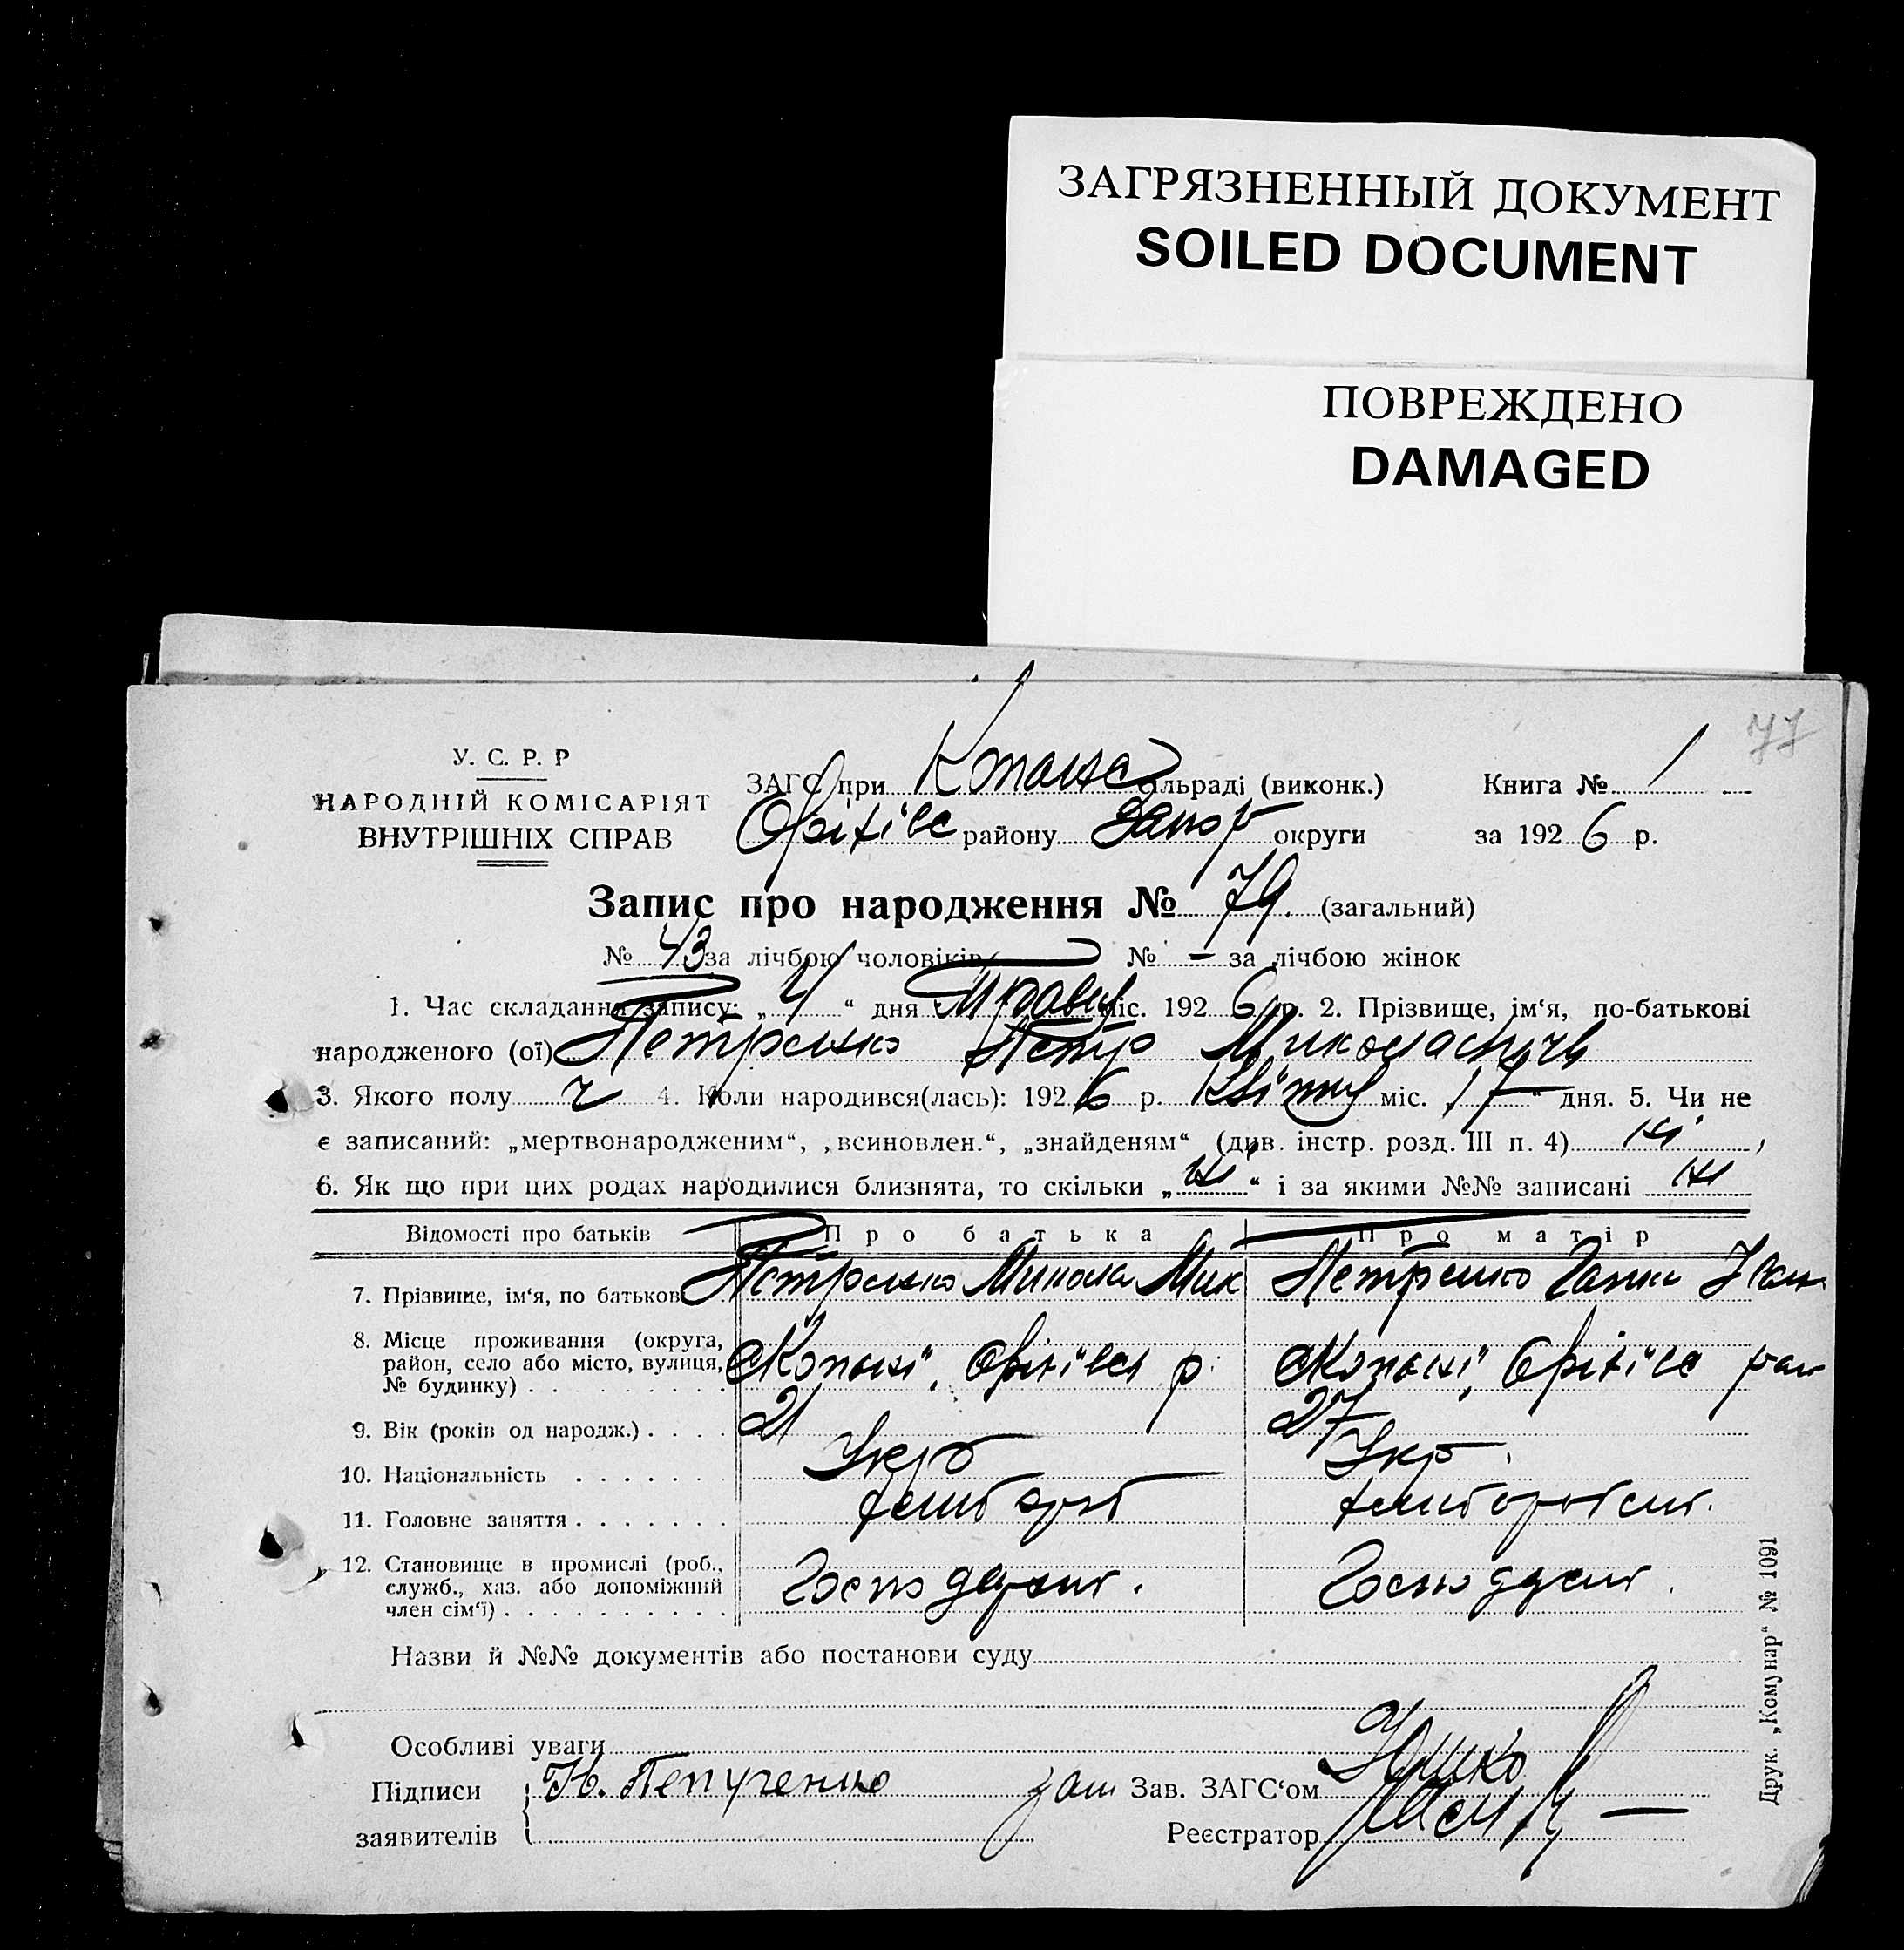 ЗАГРЯЗНЕННЫЙ ДОКУМЕНТ
SOILED DOCUMENT
ПОВРЕЖДЕНО
DAMAGED
77
У. С. Р. Р
НАРОДНІЙ КОМІСАРІЯТ
ВНУТРІШНІХ СПРАВ
ЗАГС при Копанс сільраді (виконк.)
Книга № 1
Оріхівс району Запор округи
за 1926 р.
Запис про народження № 79. (загальний)
№ 43 за лічбою чоловіків № – за лічбою жінок
1. Час складання запису: „4“ дня Травн міс. 1926 р. 2. Прізвище, ім‘я, по-батькові
народженого (ої) Петренко Петр Миколаєвич
3. Якого полу ч 4. Коли народився(лась): 1926 р. Квітня міс. „17“ дня. 5. Чи не
є записаний: „мертвонародженим“, „всиновлен.“, „знайденям“ (див. інстр. розд. III п. 4) ні ,
6. Як що при цих родах народилися близнята, то скільки „ні“ і за якими №№ записані ні
Відомості про батьків Про батька Про матір
7. Прізвище, ім‘я, по батькові Петренко Микола Мик Петренко Ганна Іван
8. Місце проживання (округа,
район, село або місто, вулиця,
№ будинку) . . . с Копані, Оріхівсь р. с Копані, Оріхівс рай
9. Вік (років од народж.) . . . . 21 27
10. Національність . . . . . . Укр Укр.
11. Головне заняття . . . . . . .
12. Становище в промислі (роб.,
служб., хаз. або допоміжний
член сім‘ї) . . . . . . . . . . Господарт. Господарт.
Назви й №№ документів або постанови суду
Особливі уваги
Підписи
заявителів
Зав. ЗАГС‘ом
Реєстратор
Друк. „Комунар“ № 1091